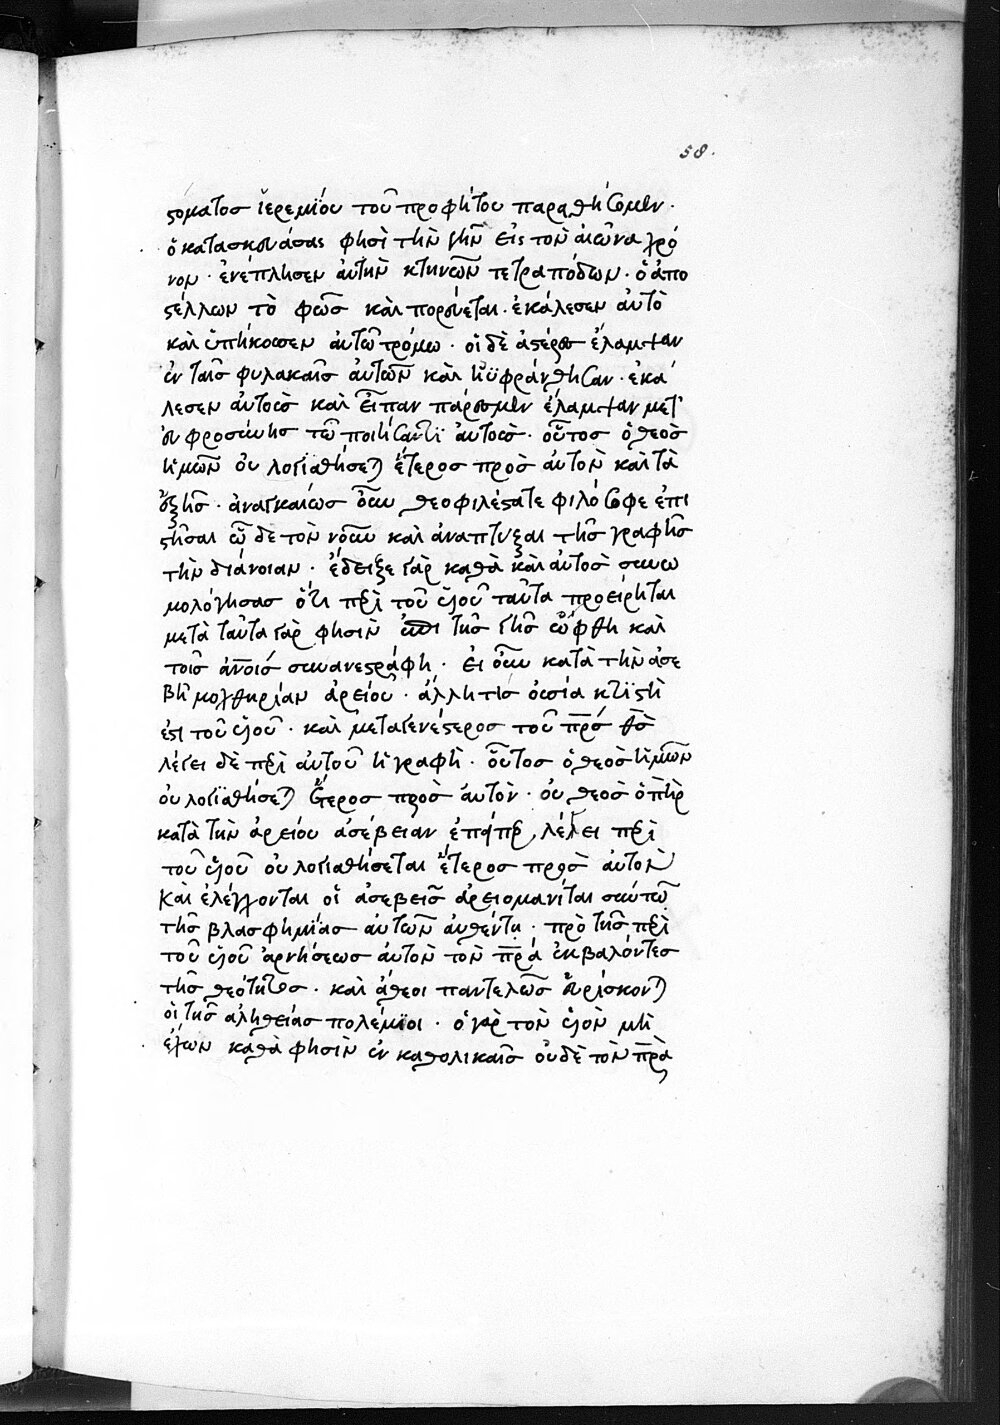 58.
στόματος ἱερεμίου τοῦ προφήτου παραθήσωμεν ·
ὁ κατασκευάσας φησὶ τὴν γῆν εἰς τὸν αἰῶνα χρό
νον · ἐνέπλησεν αὐτὴν κτηνῶν τετραπόδων · ὁ ἀπο
στέλλων τὸ φῶς καὶ πορεύεται · ἐκάλεσεν αὐτὸ
καὶ ὑπήκουσεν αὐτῶ τρόμω · οἱ δὲ ἀστέρες ἔλαμψαν
ἐν ταῖς φυλακαῖς αὐτῶν καὶ ηὐφράνθησαν · ἐκά
λεσεν αὐτοὺς καὶ εἶπαν πάρεσμεν ἔλαμψαν μετ'
εὐφροσύνης τῶ ποιήσαντι αὐτοὺς · οὗτος ὁ θεὸς
ἡμῶν οὐ λογισθήσεται ἕτερος πρὸς αὐτὸν καὶ τὰ
ἑξῆς · ἀναγκαίως οὖν θεοφιλέστατε φιλόσοφε ἐπι
στῆσαι ὧδε τὸν νοῦν καὶ ἀναπτύξαι τῆς γραφῆς
τὴν διάνοιαν · ἔδειξε γὰρ καθὰ καὶ αὐτὸς συνω
μολόγησας ὅτι περὶ τοῦ υἱοῦ ταῦτα προείρηται
μετὰ ταῦτα γὰρ φησὶν ἐπὶ τῆς γῆς ὤφθη καὶ
τοῖς ἀνοις συνανεστράφη · εἰ οὖν κατὰ τὴν ἀσε
βῆ μοχθηρίαν ἀρείου · ἄλλη τις οὐσία κτιστὴ
ἐστὶ τοῦ υἱοῦ · καὶ μεταγενέστερος τοῦ πρς θς
λέγει δὲ περὶ αὐτοῦ ἡ γραφὴ · οὗτος ὁ θεὸς ἡμῶν
οὐ λογισθήσεται ἕτερος πρὸς αὐτὸν · οὐ θεὸς ὁ πὴρ
κατὰ τὴν ἀρείου ἀσέβειαν ἐπείπερ λέγει περὶ
τοῦ υἱοῦ οὐ λογισθήσεται ἕτερος πρὸς αὐτὸν
καὶ ἐλέγχονται οἱ ἀσεβεῖς ἀρειομανῖται σὺν τῶ
τῆς βλασφημίας αὐτῶν αὐθέντη · πρὸ τῆς περὶ
τοῦ υἱοῦ ἀρνήσεως αὐτὸν τὸν πρα ἐκβαλόντες
τῆς θεότητος · καὶ ἄθεοι παντελῶς εὑρίσκονται
οἱ τῆς ἀληθείας πολέμιοι · ὁ γὰρ τὸν υἱὸν μὴ
ἔχων καθὰ φησὶν ἐν καθολικαῖς οὐδὲ τὸν πρα